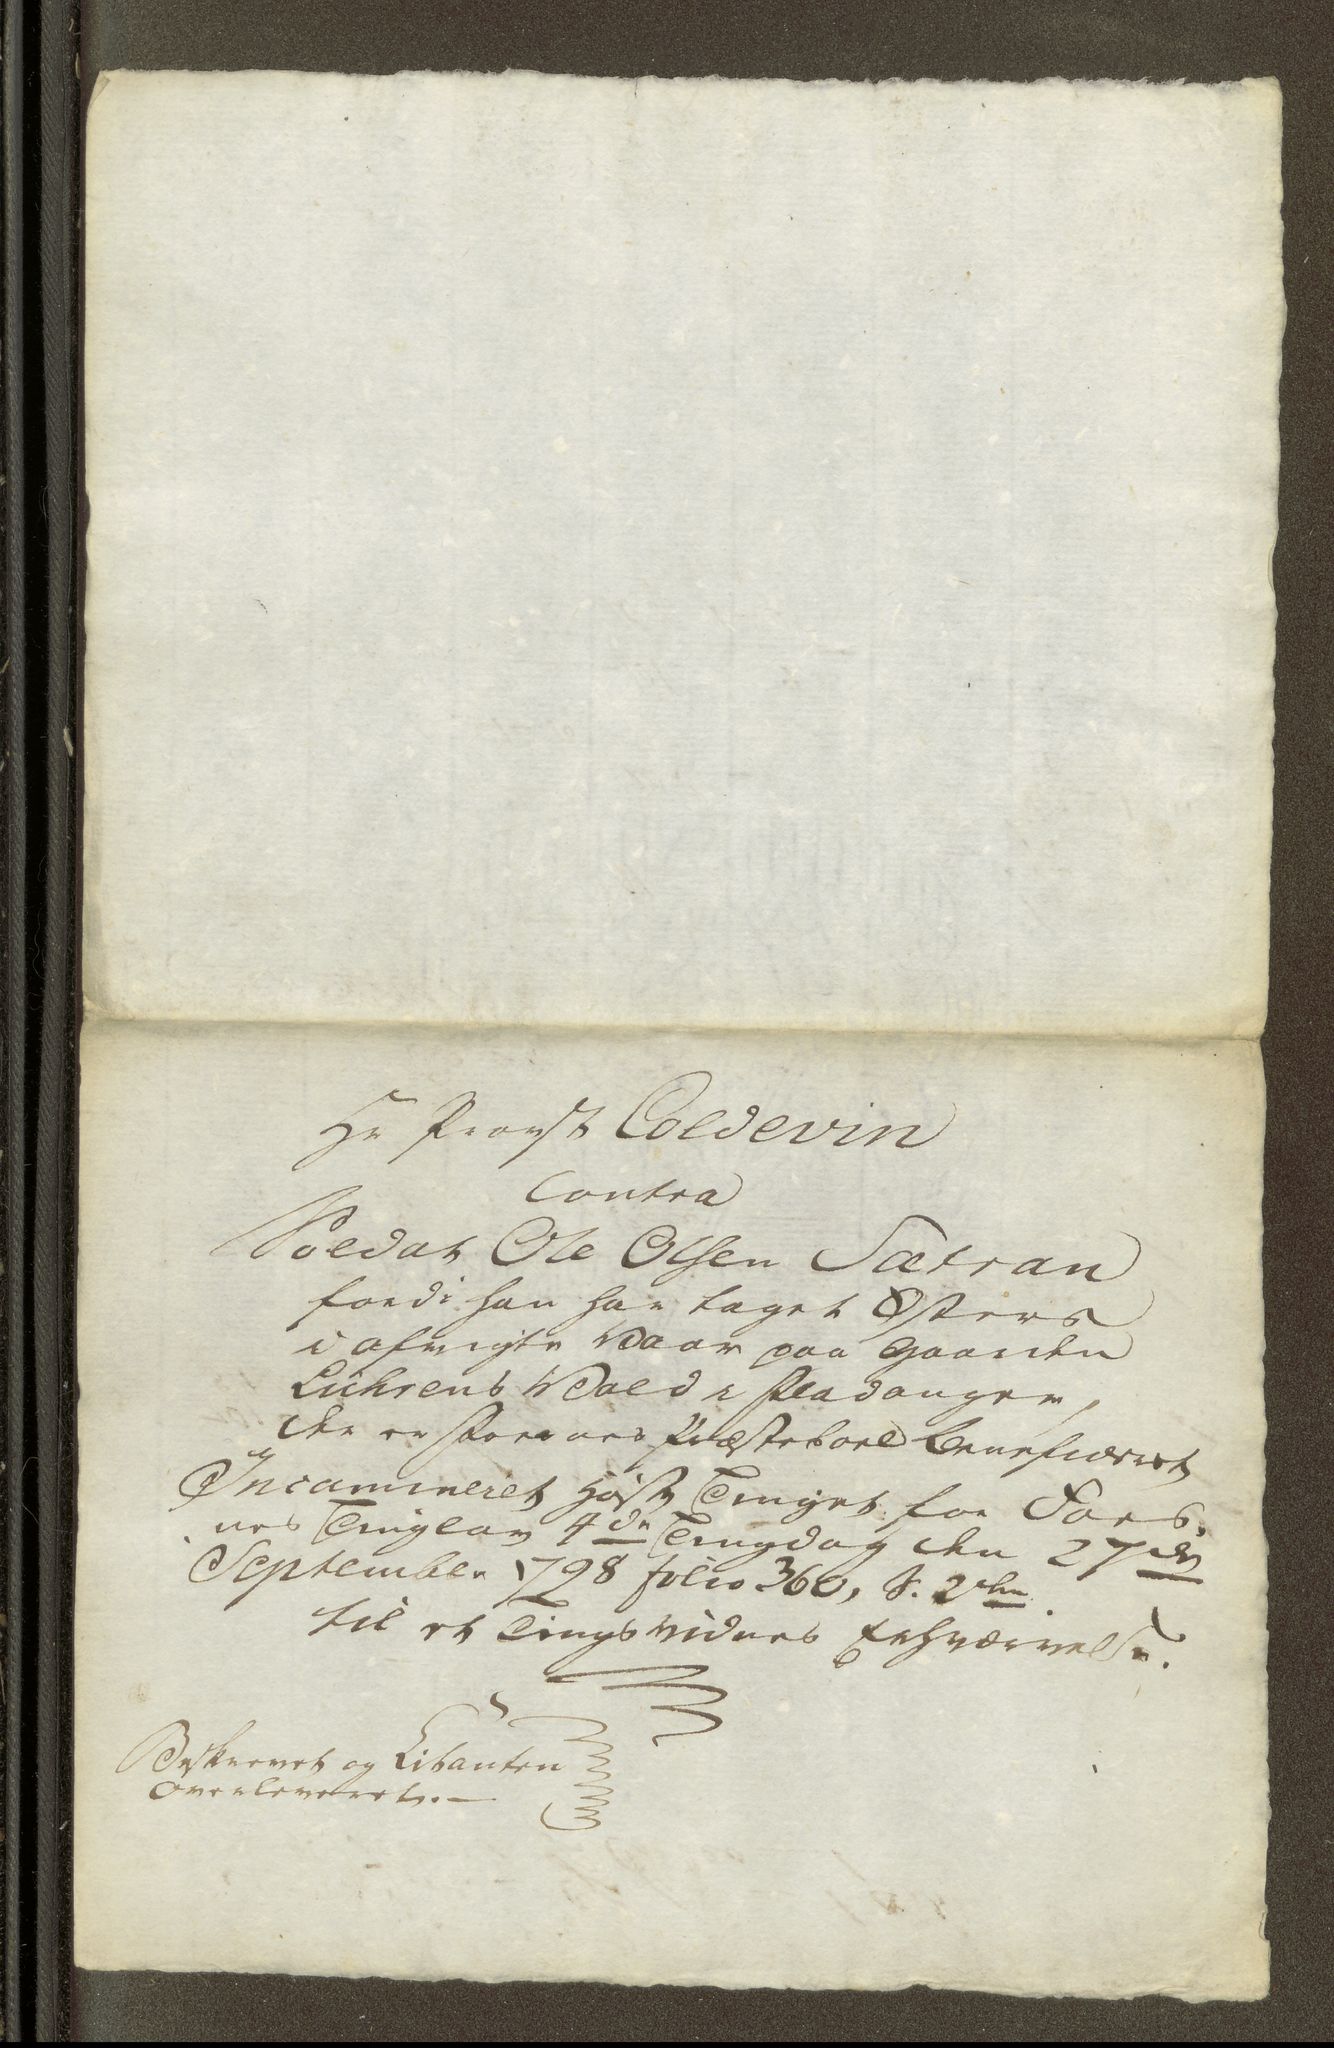 Hr Provst Coldevin
Contra
Soldat Ole Olsen Sætran
fordi han har taget Østers
i afvigte Vaar paa Gaarden
Lührens Vald i
der er Præsteboel beneficeret
Incamineret Høst Tinget for Foes-
nes Tinglav 4de Tingdag den 27de
September 1798 folio 360, §. 2den
til et Tingsvidnes Erhværvelse.
Beskrevet og Citanten
overleveret.—